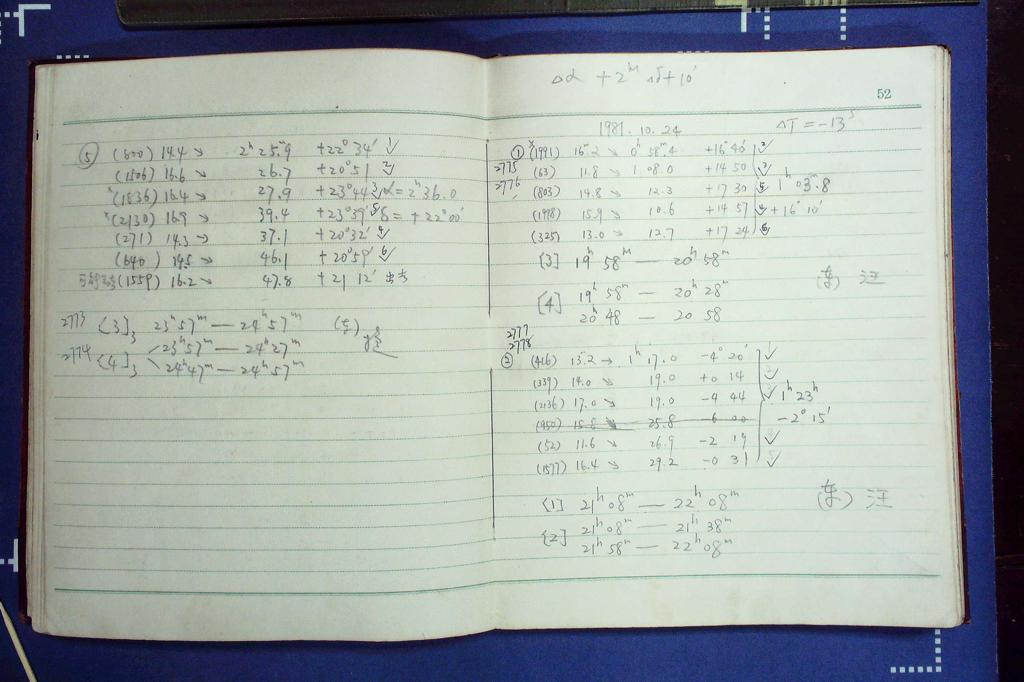 ⑤ (800) 14.4 ↘ 2ʰ 25ᵐ.9 +22° 34′ 1✓
(1506) 16.6 ↘ 26.7 +20° 51 2✓
*(1536) 16.4 ↘ 27.9 +23° 44′ 3✓ α=2ʰ36.0
*(2130) 16.9 ↘ 39.4 +23° 39′ 5✓ δ = +22°00′
(271) 14.3 → 37.1 +20° 32′ 4✓
(640) 14.5 ↘ 46.1 +20° 59′ 6✓
(1559) 16.2 ↘ 47.8 +21 12′ 出去
2773 [3]₃ 23ʰ57ᵐ — 24ʰ57ᵐ
2774 [4]₃ 23ʰ57ᵐ — 24ʰ27ᵐ
24ʰ47ᵐ — 24ʰ57ᵐ
Δα +2ᵐ Δδ+10′
52
1981.10.24 ΔT = -13ˢ
① *(1991) 16.2 ↘ 0ʰ 58ᵐ.4 +16° 40′ 2✓
2775 (63) 11.8 ↘ 1.08.0 +14 50 3✓
2776 (803) 14.8 ↘ 12.3 +17 30 5✓ 1ʰ 03ᵐ.8
(1998) 15.9 ↘ 10.6 +14 57 4✓ +16° 10′
(325) 13.0 ↘ 12.7 +17 24 6✓
[3] 19ʰ 58ᵐ — 20ʰ 58ᵐ
[4] 19ʰ 58ᵐ — 20ʰ 28ᵐ (东) 汪
20ʰ 48 — 20 58
2777
2778
② (416) 13.2 → 1ʰ 17.0 -4° 20′ ✓
(339) 14.0 ↘ 19.0 +0 14 ✓
(2136) 17.0 ↘ 19.0 -4 44 ✓ 1ʰ 23ᵐ
(950) 15.8 ↘ 25.8 -6 00 -2° 15′
(52) 11.6 ↘ 26.9 -2 17 ✓
(1577) 16.4 ↘ 29.2 -0 31 ✓
[1] 21ʰ 08ᵐ — 22ʰ 08ᵐ (东) 汪
[2] 21ʰ 08ᵐ — 21ʰ 38ᵐ
21ʰ 58ᵐ — 22ʰ 08ᵐ